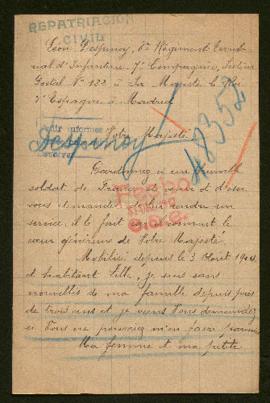 REPATRIACION
CIVIL
Léon Despinoy, 8e Régiment Territo-
rial d'Infanterie, 7e Compagnie, Secteur
Postal N° 122 à Sa Majesté le Roi
d'Espagne à Madrid
Votre Majesté
Despinoy
48358
Pardonnez à un
soldat de France de venir
vous demander de lui rendre un
service, il le fait en connaissant le
cœur généreux de Votre Majesté
Mobilisé depuis le 3 Août 1914
et habitant Lille, je suis sans
nouvelles de ma famille depuis près
de trois ans et je viens Vous demander
si Vous ne pourriez m'en faire parvenir
Ma femme et ma petite